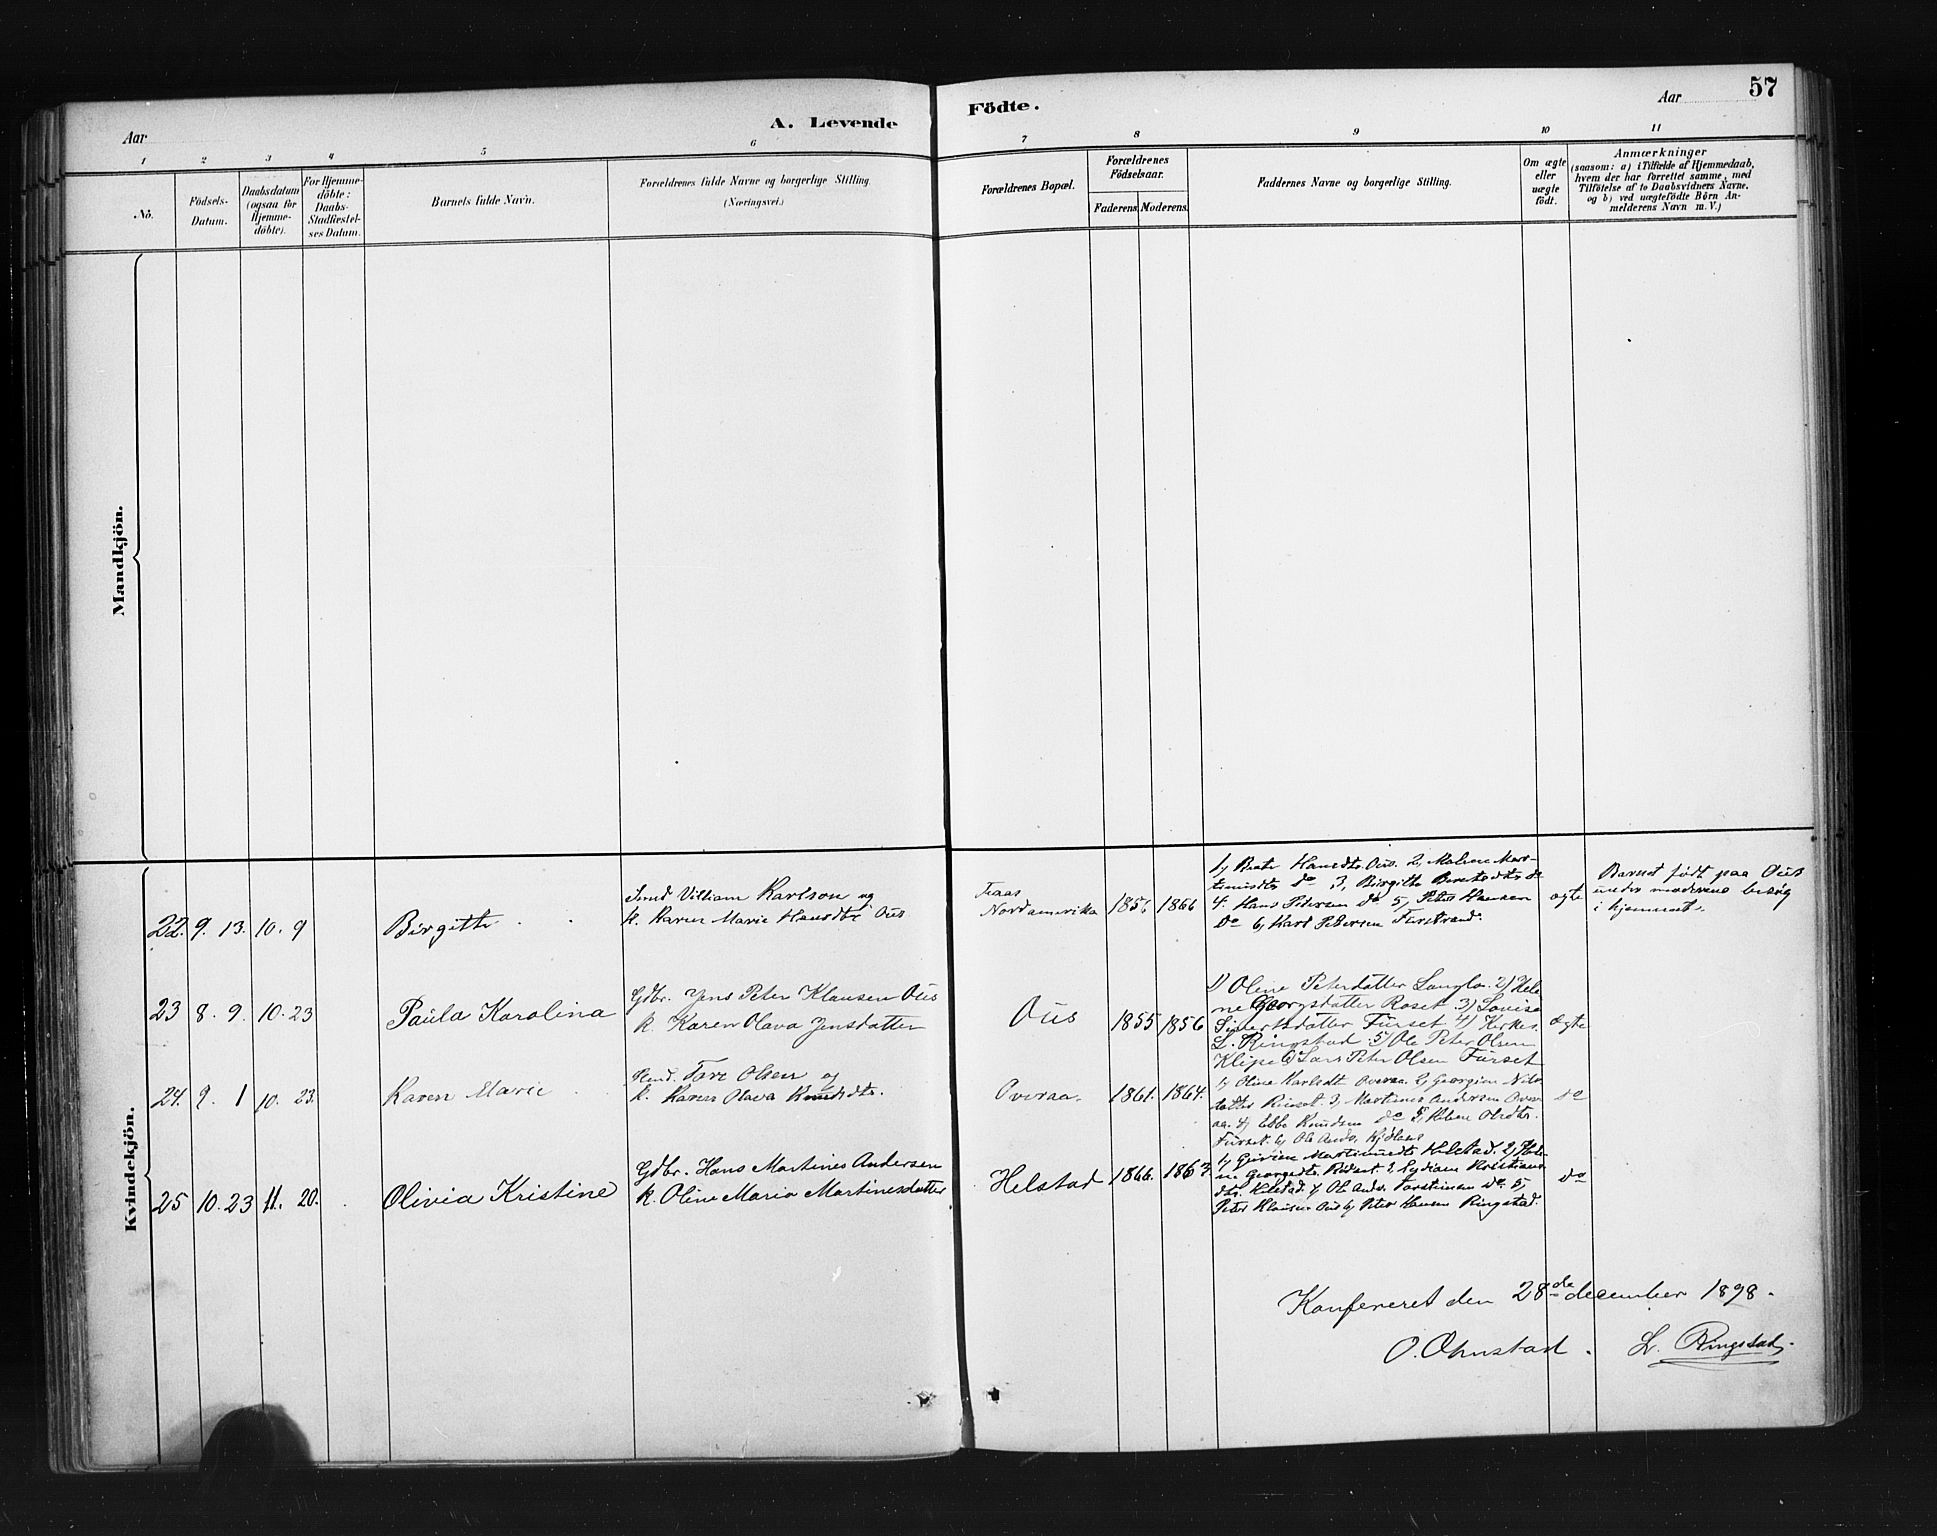 57
Aar
A. Levende
Födte.
Aar
1
2
3
4
5
6
7
8
9
10
11
No.
Födsels-
Datum.
Daabsdatum
(ogsaa for
Hjemme-
döbte).
For Hjemme-
döbte:
Daabs-
Stadfæstel-
ses Datum.
Barnets fulde Navn.
Forældrenes fulde Navne og borgerlige Stilling.
(Næringsvei.)
Forældrenes Bopæl.
Forældrenes
Födselsaar.
Faderens.
Moderens.
Faddernes Navne og borgerlige Stilling.
Om ægte
eller
uægte
födt.
Anmærkninger
(saasom: a) i Tilfælde af Hjemmedaab,
hvem der har forrettet samme, med
Tilföielse af to Daabsvidners Navne,
og b) ved uægtefödte Børn An-
melderens Navn m. V.)
Mandkjön.
Kvindekjön.
22. 9. 13. 10. 9
Birgitte
Villiam Karlson og
k. Karen Marie Hansdtr Ous
Nordamerika
1856 1866
1, Hansdtr. Ous. 2,
do 3, Birgitte
4. Hans Petersen do 5, Peter Hansen
do 6, Petersen Furstrand.
ægte
Barnet født paa Ous
under moderens besøg
i hjemmet.
23 8. 9. 10. 23
Paula Karolina
Gdbr. Jens Peter Klausen Ous
k. Karen Olava Jensdatter
Ous
1855 1856
1) Olene Petersdatter Langlo. 2) Hele-
ne Georgsdatter Roset. 3) Lovise
Sivertsdatter Furset 4) Kirkes.
L. Ringstad 5) Ole Peter Olsen
6 Lars Peter Olsen Furset
ægte
24. 9. 1 10. 23.
Karen Marie
Tore Olsen og
k. Karen Olava Knudsdtr.
Overaa.
1861. 1864.
1, Oline Karlsdt Overaa. 2, Georgine Nils-
datter 3, Martinus Andersen Over-
aa. 4, Ebbe Knudsen do 5, Olsdtr.
Furset. 6, Ole Ands.
do
25 10. 23 11. 20.
Olivia Kristine
Gdbr. Hans Martines Andersen
k. Oline Maria Martinesdatter
Helstad
1866. 1863.
1, Helstad. 2, Hele-
ne Georgsdtr. 3, Lydiane Kristians-
dtr. Helstad. 4, Ole Ands. do 5,
Peter Klausen Ous 6, Peter Hansen Ringstad.
do
Konfereret den 28de december 1898.
O. Ohnstad. L. Ringstad.